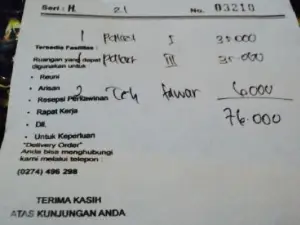 Seri : H. 21 No. 03210
1 Paket I 35.000
Tersedia Fasilitas :
Ruangan yang dapat
1 Paket III 35.000
digunakan untuk :
• Reuni
• Arisan
2 Teh tawar 6000
• Resepsi Perkawinan
• Rapat Kerja
76.000
• Dll.
• Untuk Keperluan
"Delivery Order"
Anda bisa menghubungi
kami melalui telepon :
(0274) 496 298
TERIMA KASIH
ATAS KUNJUNGAN ANDA